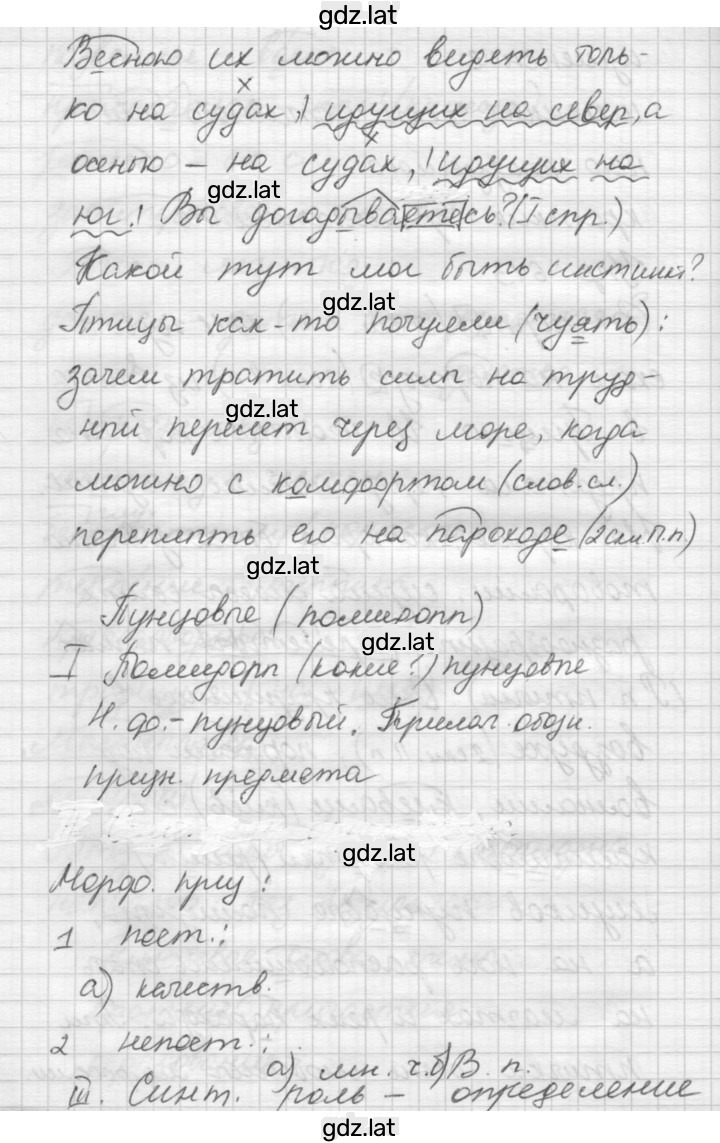 gdz.lat
Весною их можно видеть толь-
ко на судах, идущих на север, а
осенью – на судах, идущих на
gdz.lat
юг! Вы догадываетесь? (I спр.)
Какой тут мог быть инстинкт?
gdz.lat
Птицы как-то почуяли (чуять):
зачем тратить силы на труд-
gdz.lat
ный перелет через море, когда
можно с комфортом (слов. сл.)
переплыть его на пароходе (2скл. П.п)
gdz.lat
Пунцовые (помидоры)
gdz.lat
I Помидоры (какие?) пунцовые
Н.ф. – пунцовый. Прилаг. обозн.
призн. предмета
gdz.lat
Морф. призн:
1 пост.:
а) качеств.
2 непост.:
а) мн. ч. б) В. п.
III. Синт. роль – определение
gdz.lat